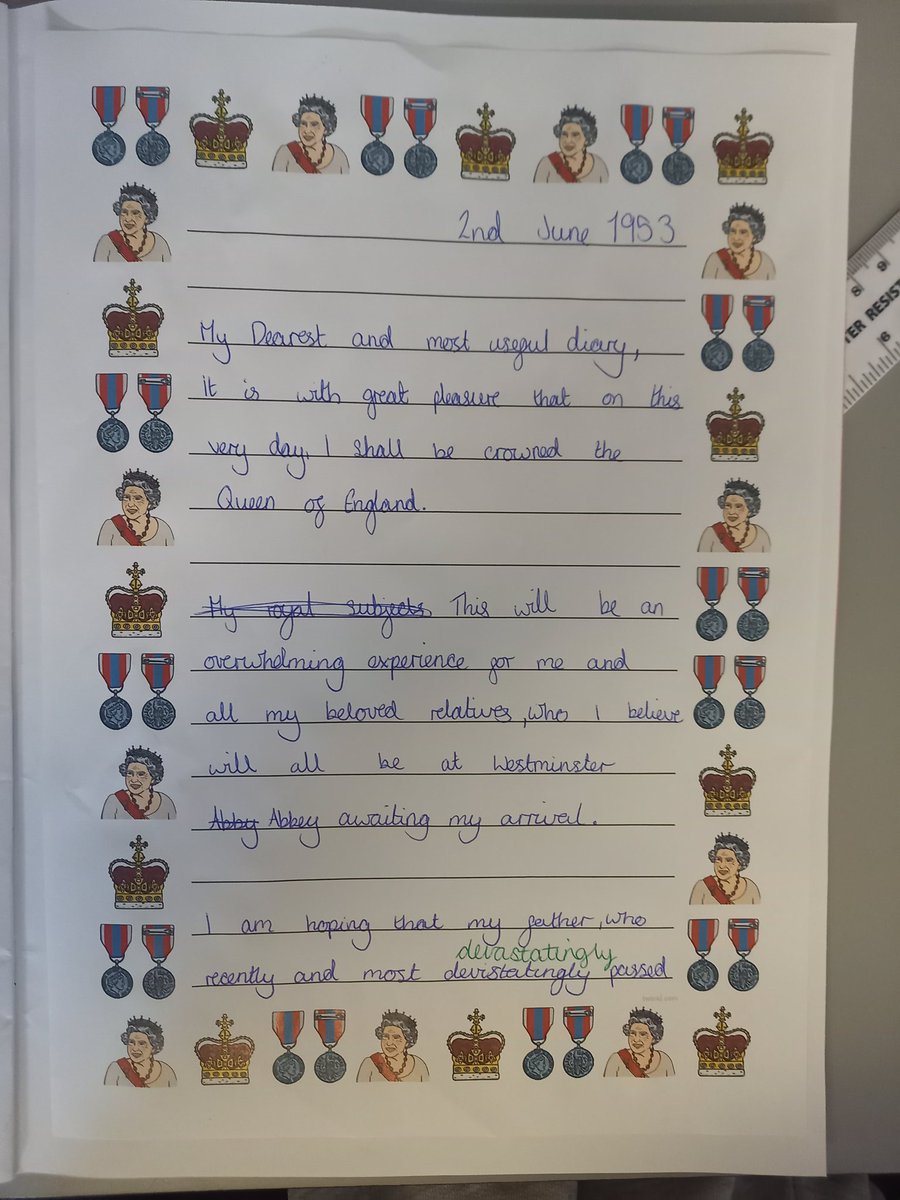 2nd June 1953
My Dearest and most useful diary,
it is with great pleasure that on this
very day, I shall be crowned the
Queen of England.
My royal subjects This will be an
overwhelming experience for me and
all my beloved relatives, who I believe
will all be at Westminster
Abby Abbey awaiting my arrival.
I am hoping that my father, who
devastatingly
recently and most devistatingly passed
twinkl.com
8 9
TER RESIST
6